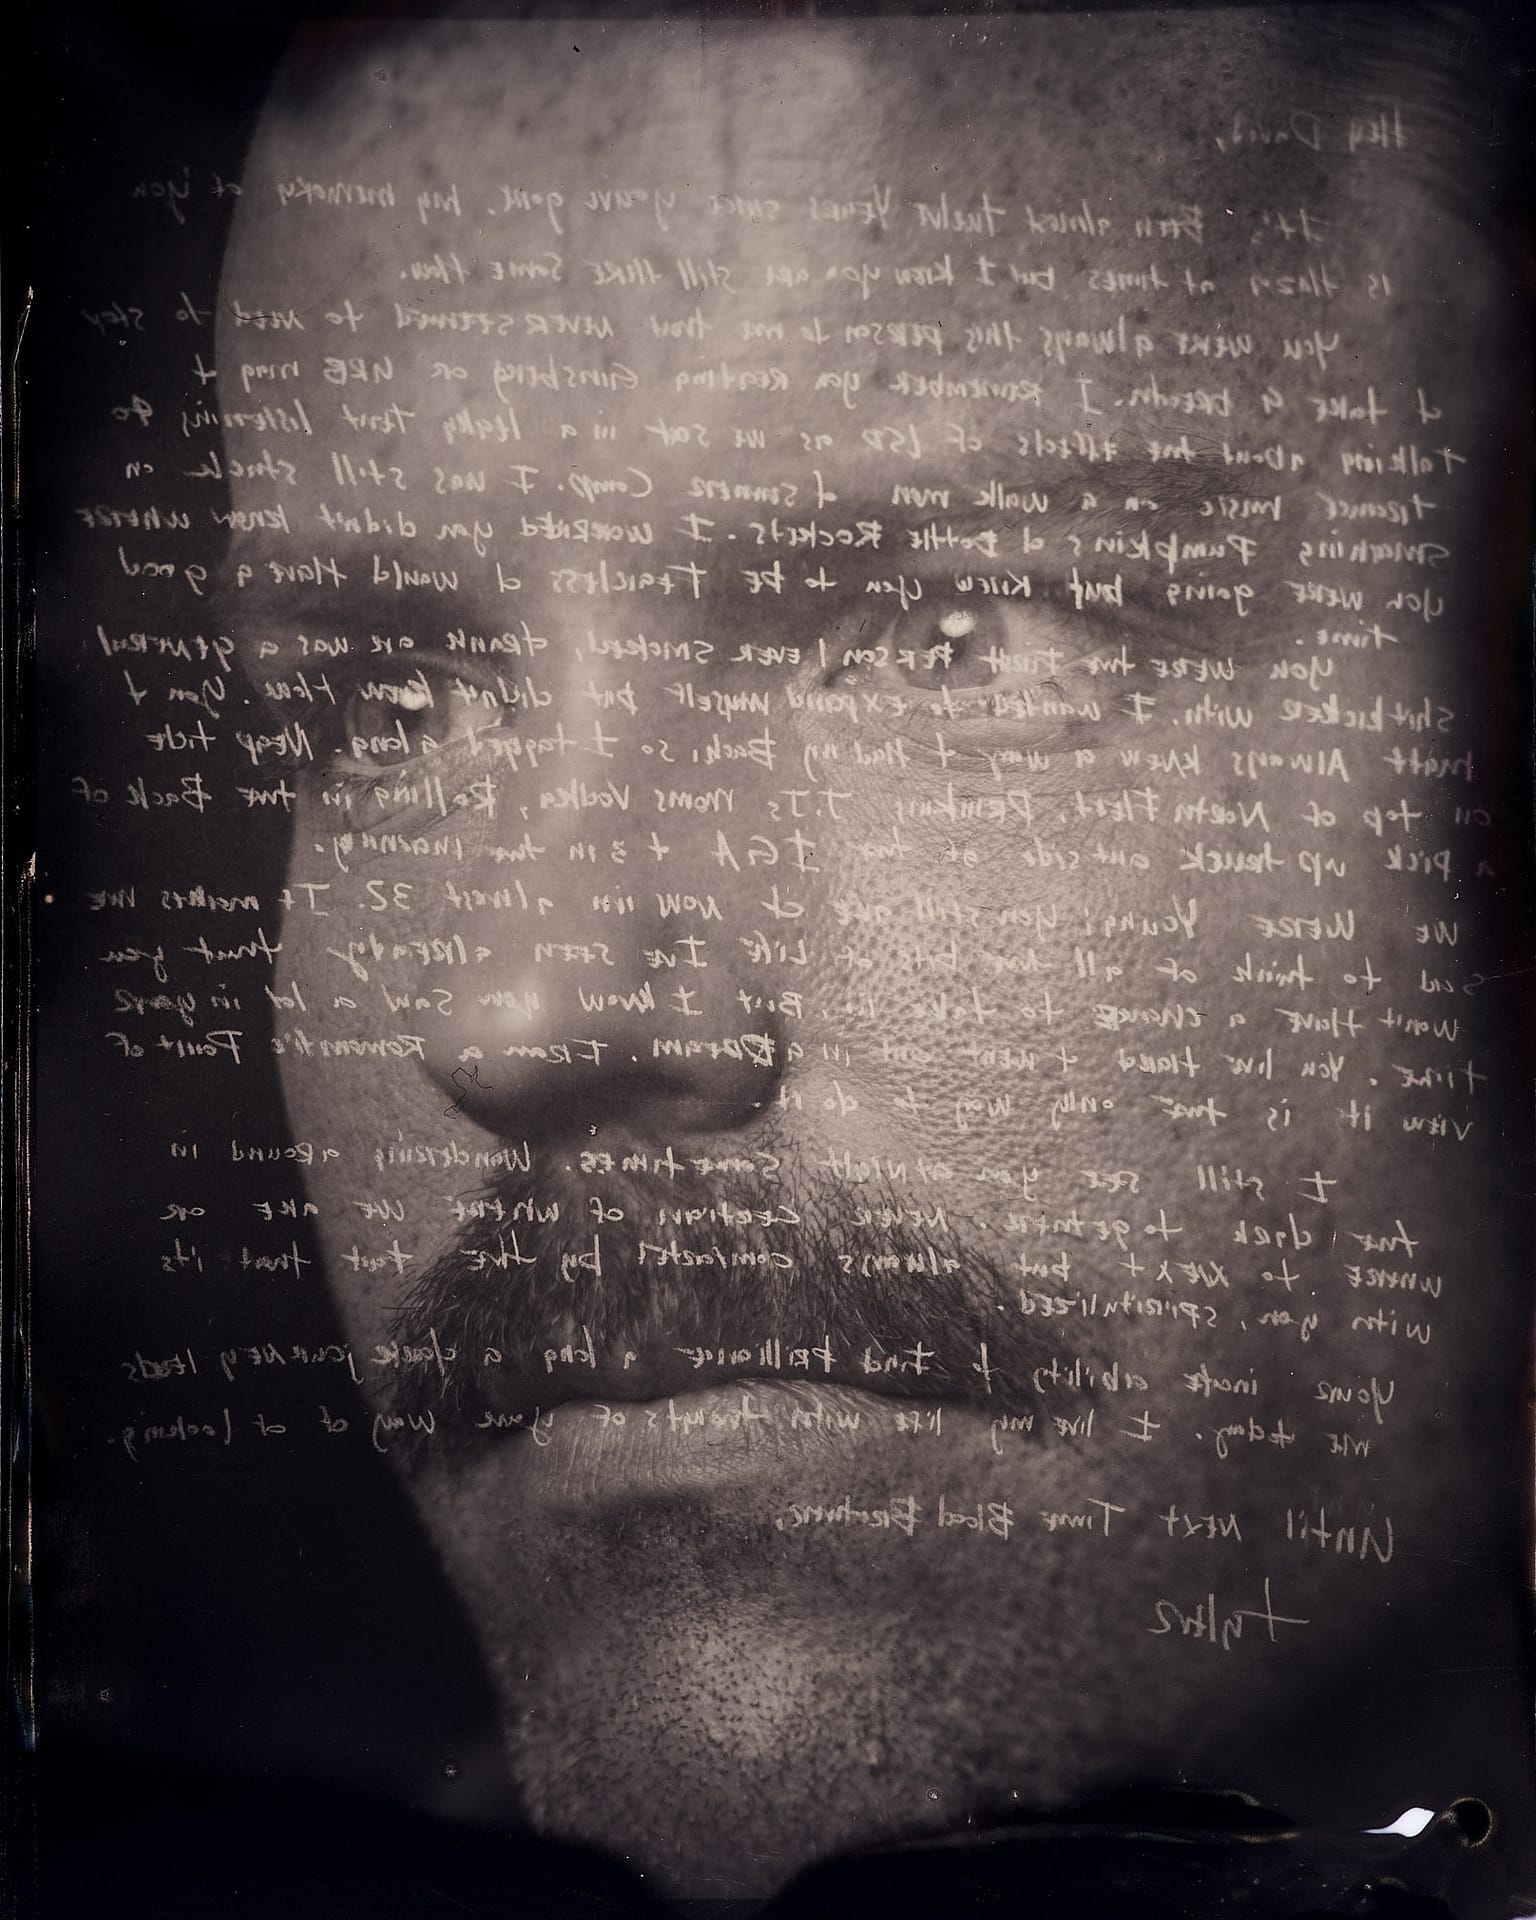 Hey David,
It's Been almost twelve Years since youve gone. My memory of you
is Hazy at times but I know you are still there some How.
You were always this person to me that never seemed to need to stop
& take a breath. I remember you reading Ginsberg or
talking about the effects of LSD as we sat in a leaky tent listening to
music on a walk man & summer Camp. I was still stuck on
Smashing Pumpkins & Bottle Rockets. I worried you didn't know where
you were going but knew you to be Fearless & would Have a good
time.
You were the First Person I ever smoked, drank or was a general
shitkicker with. I wanted to expand myself but didnt know How. You &
Matt Always knew a way & Had my Back, so I tagged along. tide
on top of North Fleet, J.J's Moms Vodka, Rolling in the Back of
a pick up truck out side of the IGA at 3 in the morning.
We Were Young; You still are & now im almost 32. It makes me
Sad to think of all the bits of Life I've seen already that you
wont Have a chance to take in. But I know you saw a lot in your
time. You liv Hard & went out in a Dream. From a Romantic Point of
view it is the only way to do it.
I still see you at Night sometimes. Wandering around in
the dark together. Never certian of where we are or
where to next but always by the fact that its
with you, spiritulized.
Your inate ability to find brilliance a long a dark journey leads
me today. I live my life with thoughts of your way of looking.
Until Next Time Blood Brother,
Tyler